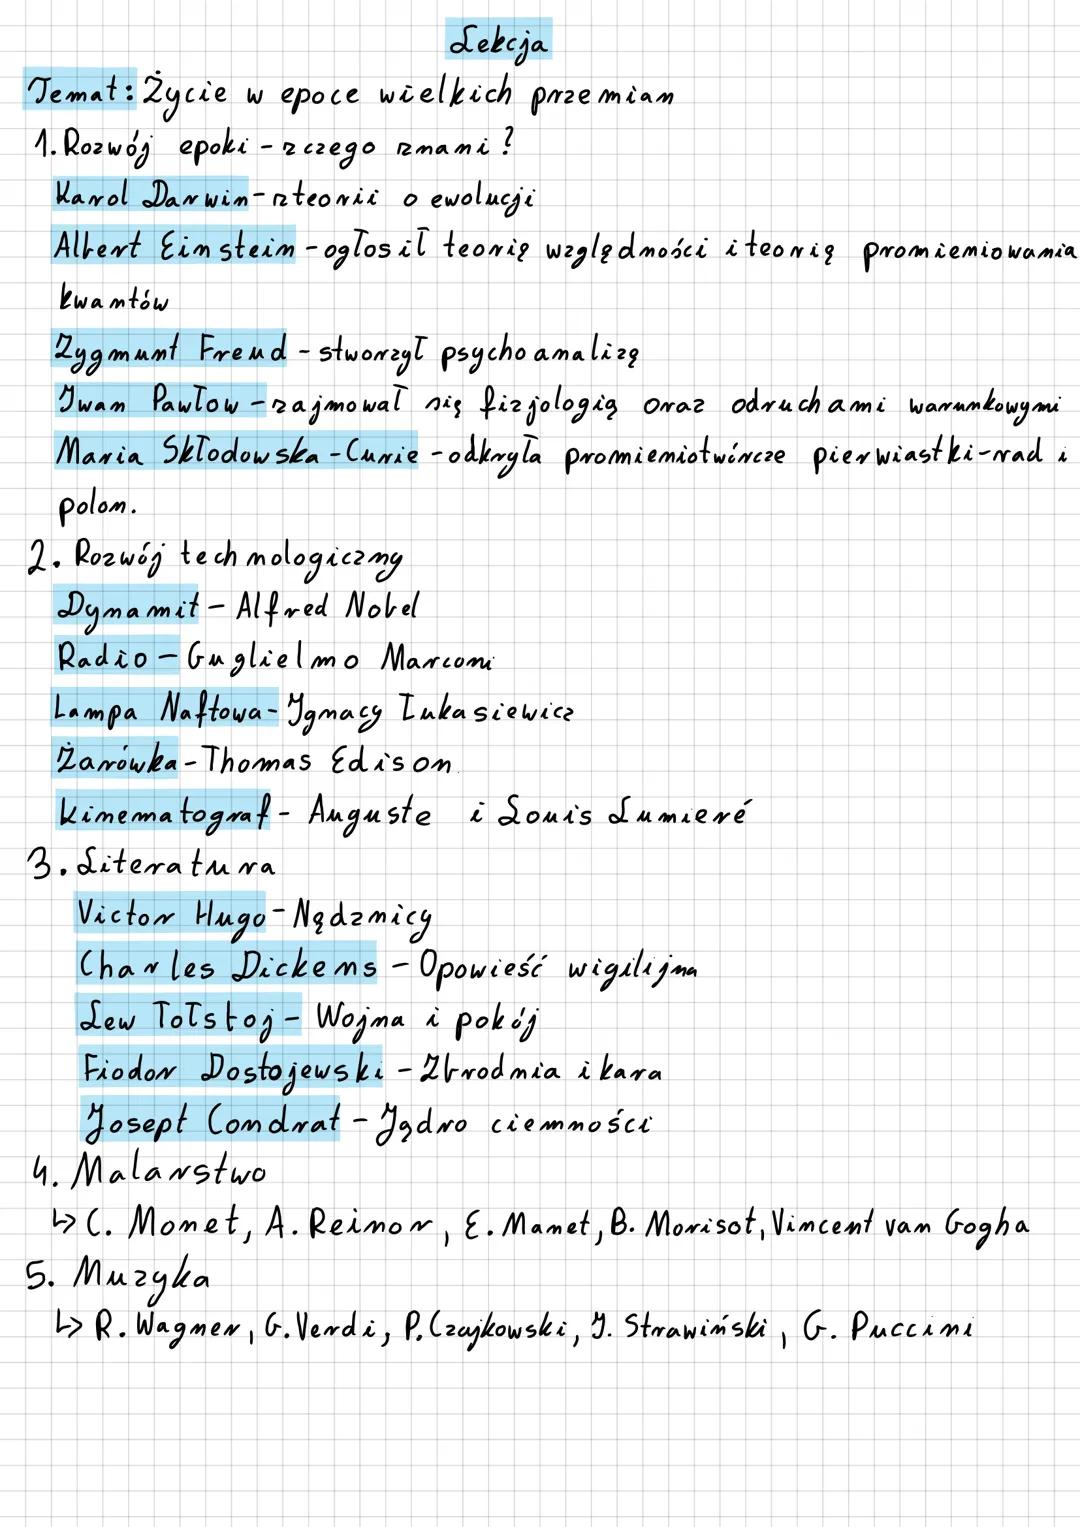 Lekcja
Temat: Życie w epoce wielkich przemian
1. Rozwój epoki - z czego znani?
Karol Darwin - z teorii o ewolucji
Albert Einstein - ogłosił teorię względności i teorię promieniowania
kwantów
Zygmunt Freud - stworzył psychoanalizę
Iwan Pawłow - zajmował się fizjologią oraz odruchami warunkowymi
Maria Skłodowska-Curie - odkryła promieniotwórcze pierwiastki - rad i
polon.
2. Rozwój technologiczny
Dynamit - Alfred Nobel
Radio - Guglielmo Marconi
Lampa Naftowa - Ignacy Łukasiewicz
Żarówka - Thomas Edison
Kinematograf - Auguste i Louis Lumieré
3. Literatura
Victor Hugo - Nędznicy
Charles Dickens - Opowieść wigilijna
Lew Tołstoj - Wojna i pokój
Fiodor Dostojewski - Zbrodnia i kara
Josept Condrat - Jądro ciemności
4. Malarstwo
↳ C. Monet, A. Reinor, E. Manet, B. Morisot, Vincent van Gogha
5. Muzyka
↳ R. Wagner, G. Verdi, P. Czajkowski, I. Strawiński, G. Puccini